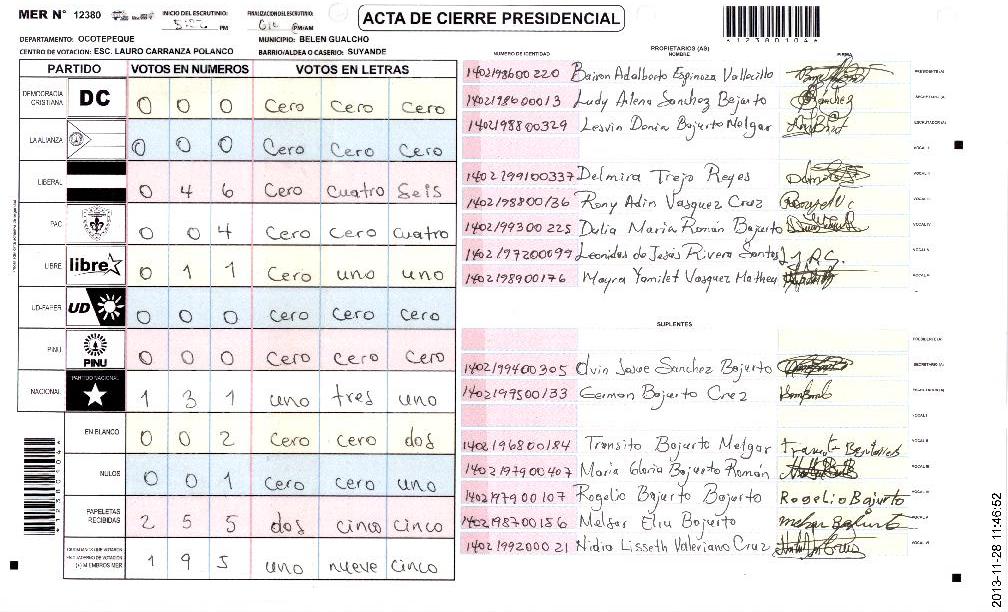 MER N° 12380
INICIO DEL ESCRUTINIO:
PM
FINALIZACION DEL ESCRUTINIO:
PM/AM
ACTA DE CIERRE PRESIDENCIAL
*12380104*
DEPARTAMENTO: OCOTEPEQUE
MUNICIPIO: BELEN GUALCHO
CENTRO DE VOTACION: ESC. LAURO CARRANZA POLANCO
BARRIO/ALDEA O CASERIO: SUYANDE
PARTIDO VOTOS EN NUMEROS VOTOS EN LETRAS
DEMOCRACIA CRISTIANA DC 0 0 0 Cero Cero Cero
LA ALIANZA 0 0 0 Cero Cero Cero
LIBERAL 0 4 6 Cero Cuatro Seis
PAC 0 0 4 Cero Cero cuatro
LIBRE libre 0 1 1 Cero uno uno
UD-FAPER UD 0 0 0 Cero Cero Cero
PINU PINU 0 0 0 Cero Cero Cero
NACIONAL PARTIDO NACIONAL 1 3 1 uno tres uno
EN BLANCO 0 0 2 Cero cero dos
NULOS 0 0 1 Cero cero uno
PAPELETAS RECIBIDAS 2 5 5 dos cinco cinco
CIUDADANOS QUE VOTARON EN CUADERNO DE VOTACION (+) MIEMBROS MER 1 9 5 uno nueve cinco
PROPIETARIOS (AS)
NUMERO DE IDENTIDAD NOMBRE FIRMA
1402198600220 Bairon Adalberto Espinoza Vallecillo PRESIDENTE(A)
1402198600013 Ludy Arlena Sanchez Bajurto Sánchez SECRETARIO(A)
1402198800329 Lesvin Donia Bajurto Melgar ESCRUTADOR(A)
VOCAL I
1402199100337 Delmira Trejo Reyes VOCAL II
1402198800136 Rony Adin Vasquez Cruz VOCAL III
1402199300225 Dulia Maria Román Bajurto VOCAL IV
1402197200099 Leonidas de Jesús Rivera Santos VOCAL V
1402198900176 Mayra Yamilet Vasquez Matheu
SUPLENTES
PRESIDENTE(A)
1402199400305 Elvin Josue Sanchez Bajurto SECRETARIO(A)
1402199500133 German Bajurto Cruz
VOCAL I
1402196800184 Transito Bajurto Melgar VOCAL II
1402197900407 Maria Gloria Bajurto Román VOCAL III
1402197900107 Rogelio Bajurto Bajurto Rogelio Bajurto
1402198700186 Melsar Eliu Bajurto
1402199200021 Nidia Lisseth Valeriano Cruz VOCAL VI
*12380104*
2013-11-28 11:46:52